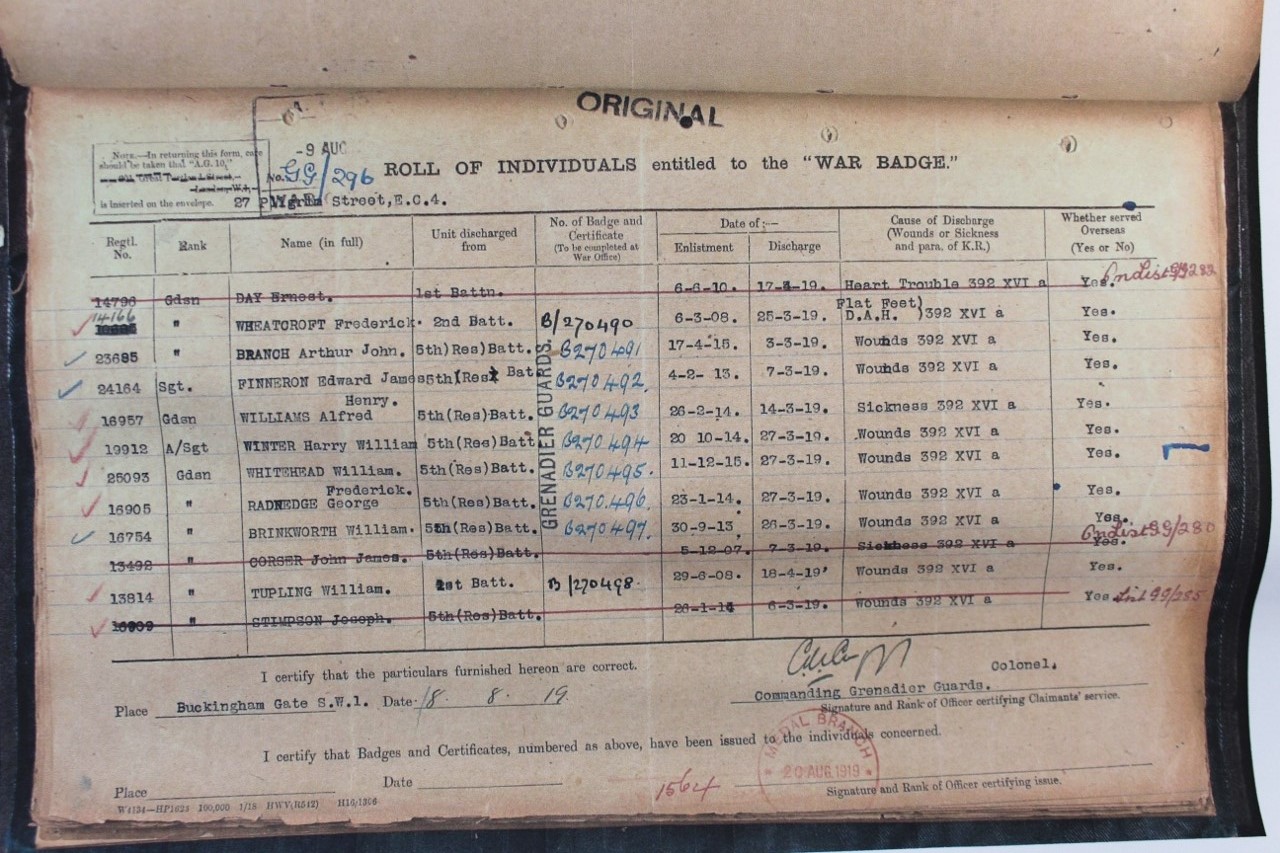 ORIGINAL
NOTE.—In returning this form, care
should be taken that "A.G. 10,"
is inserted on the envelope.
-9 AUG
No. GG/296
27 Pilgrim Street, E.C.4.
ROLL OF INDIVIDUALS entitled to the "WAR BADGE."
Regtl. No. Rank Name (in full) Unit discharged from No. of Badge and Certificate (To be completed at War Office) Date of:— Enlistment Discharge Cause of Discharge (Wounds or Sickness and para. of K.R.) Whether served Overseas (Yes or No)
14796 Gdsn DAY Ernest. 1st Battn. 6-6-10. 17-4-19. Heart Trouble 392 XVI a Yes. On List GG 282
14166 " WHEATCROFT Frederick. 2nd Batt. B/270490 6-3-08. 25-3-19. Flat Feet) D.A.H. )392 XVI a Yes.
23685 " BRANCH Arthur John. 5th)Res)Batt. B270491 17-4-15. 3-3-19. Wounds 392 XVI a Yes.
24164 Sgt. FINNERON Edward James 5th(Res) Batt B270492. 4-2- 13. 7-3-19. Wounds 392 XVI a Yes.
16957 Gdsn WILLIAMS Alfred Henry. 5th(Res)Batt. B270493 26-2-14. 14-3-19. Sickness 392 XVI a Yes.
19912 A/Sgt WINTER Harry William 5th(Res)Batt B270494 20 10-14. 27-3-19. Wounds 392 XVI a Yes.
25093 Gdsn WHITEHEAD William. 5th(Res)Batt. B270495. 11-12-15. 27-3-19. Wounds 392 XVI a Yes.
16905 " RADNEDGE George Frederick. 5th(Res)Batt. B270496. 23-1-14. 27-3-19. Wounds 392 XVI a Yes.
16754 " BRINKWORTH William. 5th(Res)Batt. B270497. 30-9-13 26-3-19. Wounds 392 XVI a Yes.
13492 " CORSER John James. 5th(Res)Batt. 5-12-07. 7-3-19. Sickness 392 XVI a Yes. On List GG/280
13814 " TUPLING William. 1st Batt. B/270498. 29-6-08. 18-4-19' Wounds 392 XVI a Yes.
16909 " STIMPSON Joseph. 5th(Res)Batt. 26-1-14 6-3-19. Wounds 392 XVI a Yes List GG/285
GRENADIER GUARDS.
I certify that the particulars furnished hereon are correct.
Colonel.
Place Buckingham Gate S.W.1. Date 18. 8. 19. Commanding Grenadier Guards.
Signature and Rank of Officer certifying Claimants' service.
I certify that Badges and Certificates, numbered as above, have been issued to the individuals concerned.
MEDAL BRANCH
20 AUG.1919
Place Date 1564 Signature and Rank of Officer certifying issue.
W4134—HP1623 100,000 1/18 HWV(R542) H16/1306